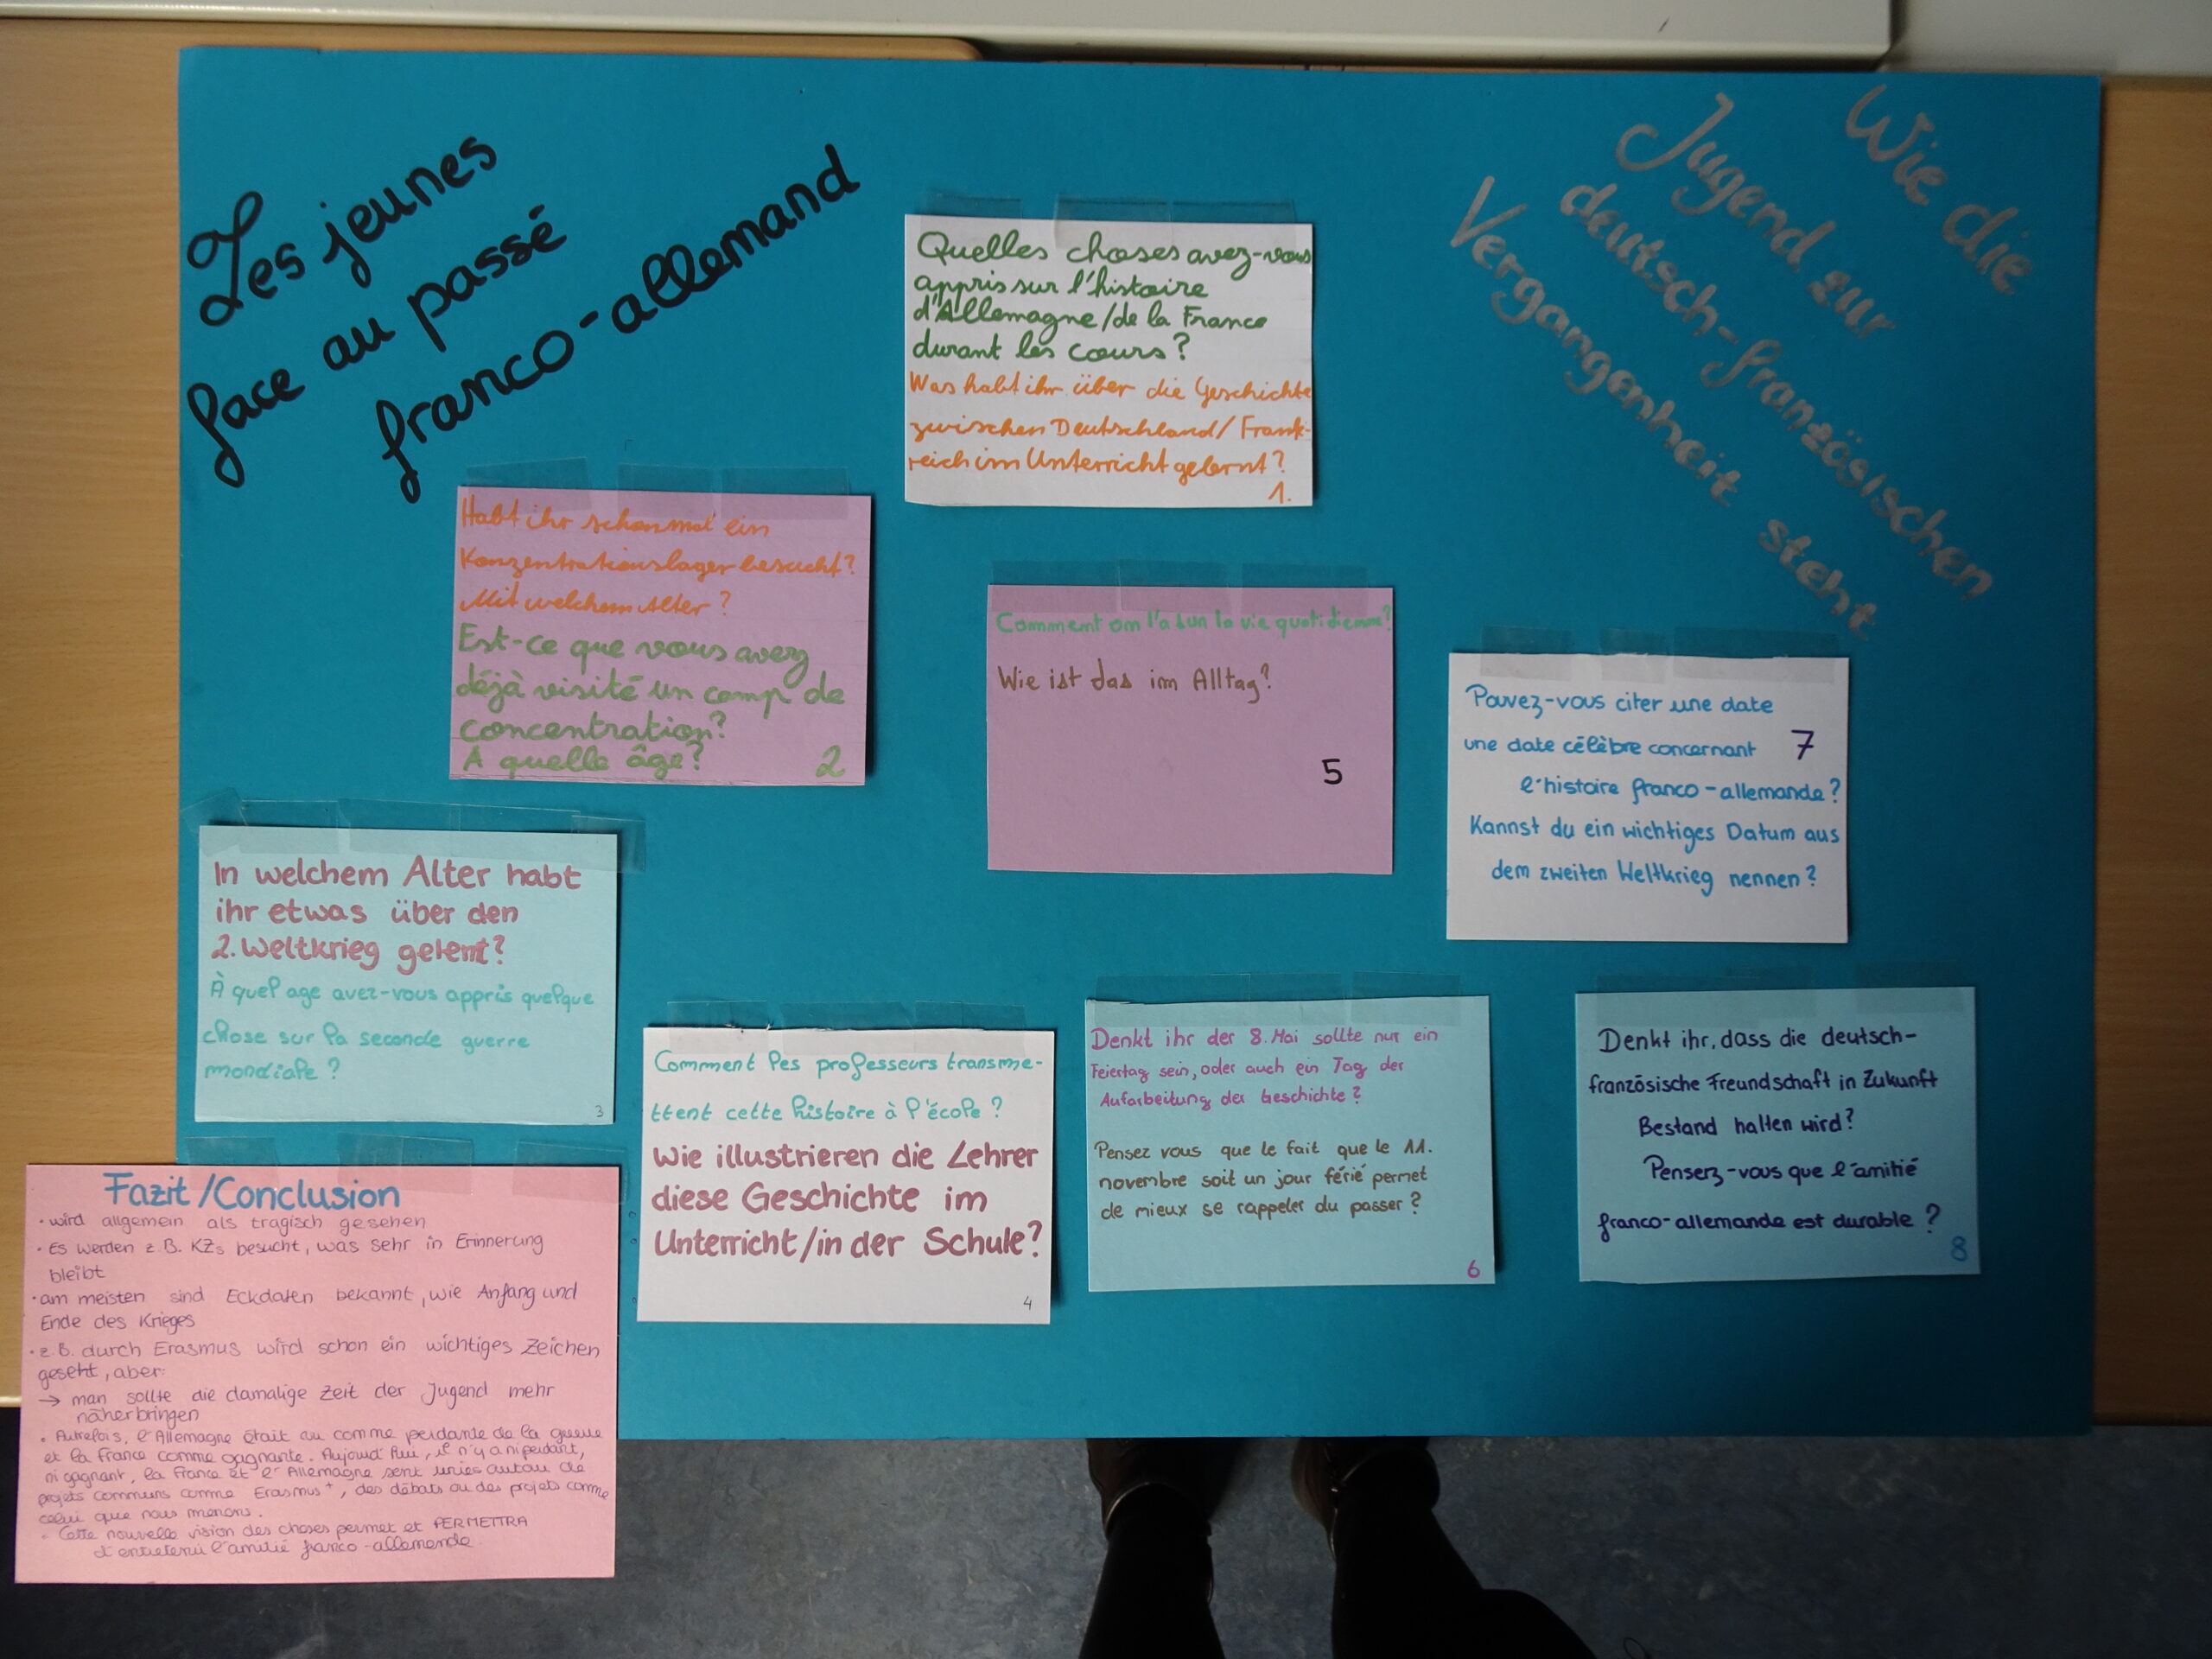 Les jeunes
face au passé
franco-allemand
Wie die
Jugend zur
deutsch-französischen
Vergangenheit steht
Quelles choses avez-vous
appris sur l'histoire
d'Allemagne/de la France
durant les cours?
Was habt ihr über die Geschichte
zwischen Deutschland/Frank-
reich im Unterricht gelernt?
1.
Habt ihr schonmal ein
Konzentrationslager besucht?
Mit welchem Alter?
Est-ce que vous avez
déjà visité un camp de
concentration?
A quelle âge?
2
In welchem Alter habt
ihr etwas über den
2. Weltkrieg gelernt?
À quel age avez-vous appris quelque
chose sur la seconde guerre
mondiale?
3
Comment les professeurs transme-
ttent cette histoire à l'école?
Wie illustrieren die Lehrer
diese Geschichte im
Unterricht/in der Schule?
4
Comment on l'a sur la vie quotidienne?
Wie ist das im Alltag?
5
Denkt ihr der 8. Mai sollte nur ein
Feiertag sein, oder auch ein Tag der
Aufarbeitung der Geschichte?
Pensez vous que le fait que le 11.
novembre soit un jour férié permet
de mieux se rappeler du passer?
6
Pouvez-vous citer une date
une date célèbre concernant
l'histoire franco-allemande?
Kannst du ein wichtiges Datum aus
dem zweiten Weltkrieg nennen?
7
Denkt ihr, dass die deutsch-
französische Freundschaft in Zukunft
Bestand halten wird?
Pensez-vous que l'amitié
franco-allemande est durable?
8
Fazit/Conclusion
• wird allgemein als tragisch gesehen
• Es werden z.B. KZs besucht, was sehr in Erinnerung
bleibt
• am meisten sind Eckdaten bekannt, wie Anfang und
Ende des Krieges
• z.B. durch Erasmus wird schon ein wichtiges Zeichen
gesetzt, aber:
→ man sollte die damalige Zeit der Jugend mehr
näherbringen
• Autrefois, l'Allemagne était vu comme perdante de la guerre
et la France comme gagnante. Aujourd'hui, il n'y a ni perdant,
ni gagnant, la France et l'Allemagne sont unies autour de
projets communs comme Erasmus+, des débats ou des projets comme
celui que nous menons.
• Cette nouvelle vision des choses permet et PERMETTRA
d'entretenir l'amitié franco-allemande.